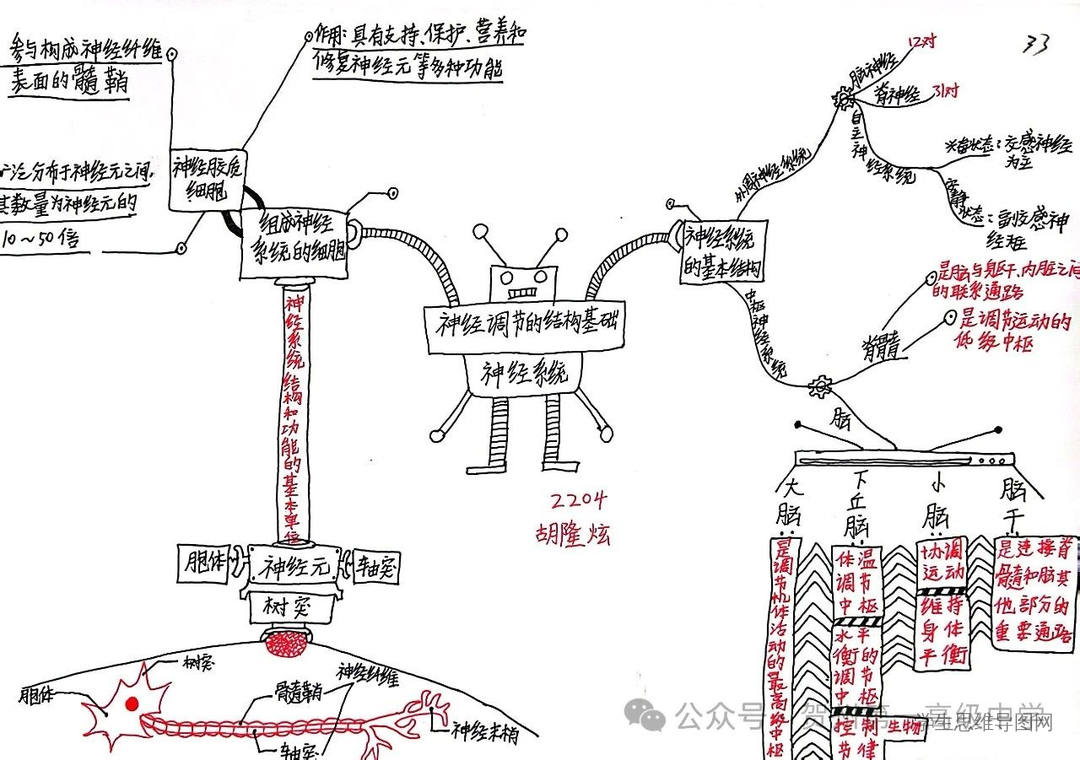 参与构成神经纤维
表面的髓鞘
作用:具有支持、保护、营养和
修复神经元等多种功能
广泛分布于神经元之间.
其数量为神经元的
10~50倍
神经胶质
细胞
组成神经
系统的细胞
神经系统结构和功能的基本单位
胞体
神经元
轴突
树突
树突
胞体
骨髓鞘
神经纤维
轴突
神经末梢
神经调节的结构基础
神经系统
2204
胡隆炫
33
神经系统
的基本结构
外周神经系统
脑神经
12对
脊神经
31对
自主神经系统
兴奋状态:交感神经
为主
安静状态:副交感神
经
中枢神经系统
脊髓
是脑与躯干、内脏之间
的联系通路
是调节运动的
低级中枢
脑
大脑
是调节机体活动的最高级中枢
下丘脑
体温
调节
中枢
水平
衡的
调节
中枢
控制
生物
节律
小脑
协调
运动
维持
身体
平衡
脑干
是连接脊
髓和脑其
他部分的
重要通路
公众号
高级中学
学生思维导图网